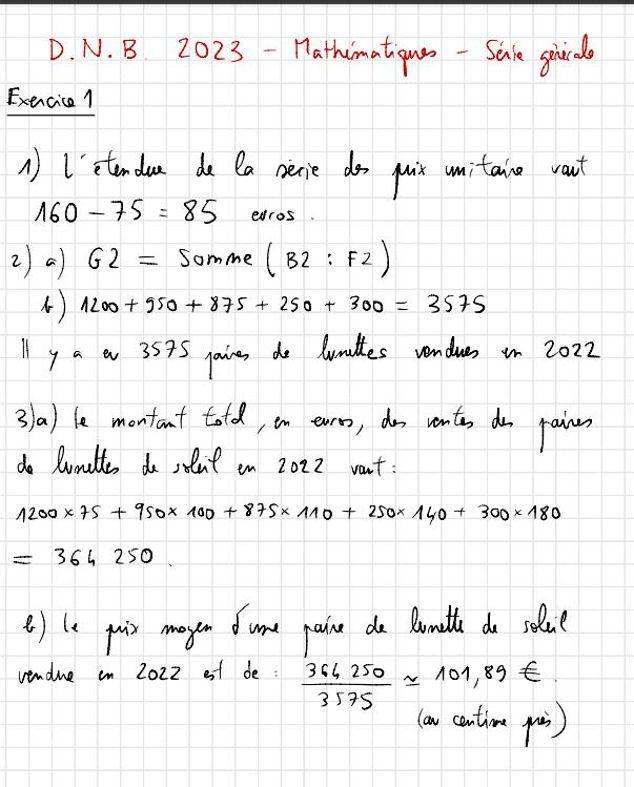 D.N.B. 2023 - Mathématiques - Série générale
Exercice 1
1) L'étendue de la série des prix unitaire vaut
160 - 75 = 85 euros.
2) a) G2 = Somme (B2 : F2)
b) 1200 + 950 + 875 + 250 + 300 = 3575
Il y a eu 3575 paires de lunettes vendues en 2022
3)a) Le montant total, en euros, des ventes des paires
de lunettes de soleil en 2022 vaut :
1200 × 75 + 950 × 100 + 875 × 110 + 250 × 140 + 300 × 180
= 364 250.
b) Le prix moyen d'une paire de lunette de soleil
vendue en 2022 est de : 364 250 / 3575 ≃ 101,89 €.
(au centime près)